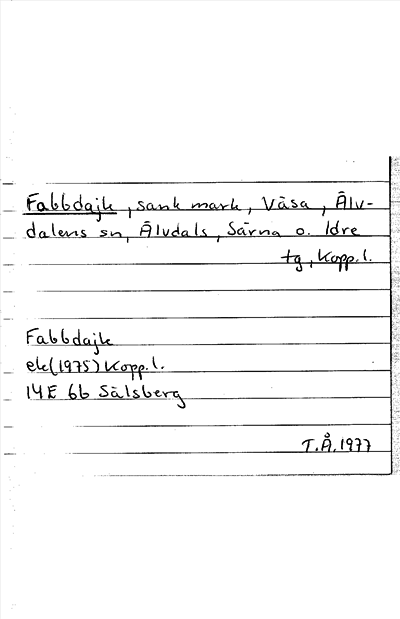 Fabbdajk, sank mark, Våsa, Älv-
dalens sn, Älvdals, Särna o. Idre
tg, Kopp.l.
Fabbdajk
ek(1975) Kopp.l.
14E 6b Sälsberg
T.Å.1977